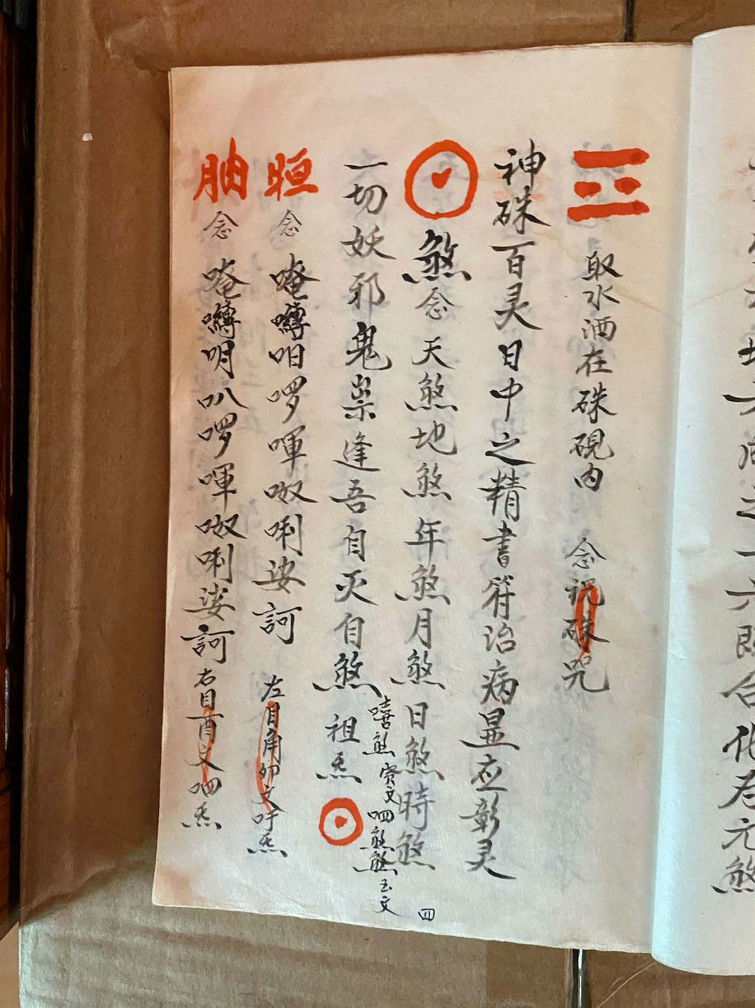 取水洒在硃砚内 念祝硃咒
神硃百灵日中之精書符治病显应彰灵
煞念天煞地煞年煞月煞日煞時煞
一切妖邪鬼祟逢吾自灭自煞 祖炁
嘻煞 賫文呬煞煞玉文
晅 念 唵囀呾啰喗呶唎娑訶 左目角卯文吁炁
䏌 念 唵囀明叭啰喗呶唎娑訶 右目酉文呬炁
四